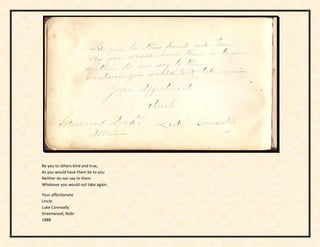 Be you to others kind and true
As you would have them be to you
Neither do nor say to them
Whatever you would not take again
Your affectionate
Uncle
Greenwood, Nebr Luke Conneally
1888
Be you to others kind and true,
As you would have them be to you
Neither do nor say to them
Whatever you would not take again.
Your affectionate
Uncle
Luke Conneally
Greenwood, Nebr
1888